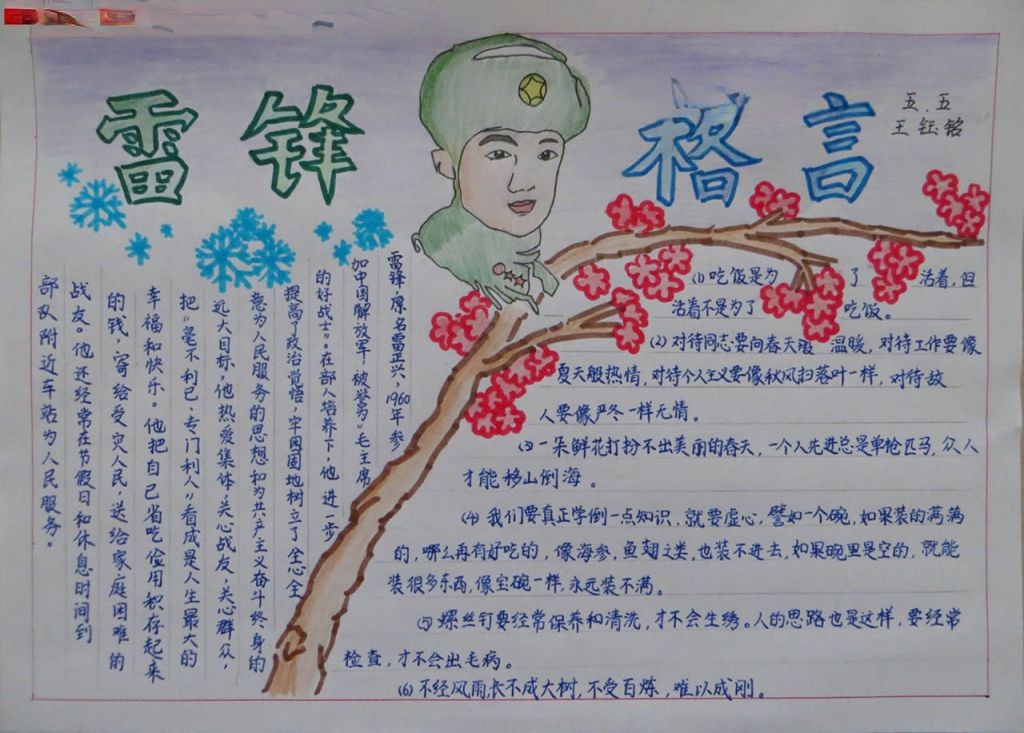 雷锋
格言
五.五
王钰铭
雷锋,原名雷正兴,1960年参
加中国解放军,被誉为"毛主席
的好战士"。在部人培养下,他进一步
提高了政治觉悟,牢固固地树立了全心全
意为人民服务的思想和为共产主义奋斗终身的
远大目标,他热爱集体,关心战友,关心群众,
把"毫不利己、专门利人"看成是人生最大的
幸福和快乐。他把自己省吃俭用积存起来
的钱,寄给受灾人民,送给家庭困难的
战友。他还经常在节假日和休息时间到
部队附近车站为人民服务。
(1)吃饭是为了活着,但
活着不是为了吃饭。
(2)对待同志要向春天般温暖,对待工作要像
夏天般热情,对待个人主义要像秋风扫落叶一样,对待敌
人要像严冬一样无情。
(3)一朵鲜花打扮不出美丽的春天,一个人先进总是单枪匹马,众人
才能移山倒海。
(4)我们要真正学倒一点知识,就要虚心,譬如一个碗,如果装的满满
的,哪么再有好吃的,像海参,鱼翅之类,也装不进去,如果碗里是空的,就能
装很多东西,像宝碗一样,永远装不满。
(5)螺丝钉要经常保养和清洗,才不会生绣。人的思路也是这样,要经常
检查,才不会出毛病。
(6)不经风雨,长不成大树,不受百炼,难以成刚。